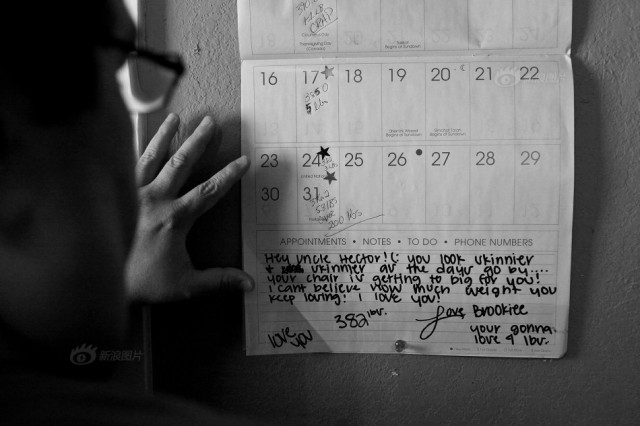 CRAP
Thanksgiving Day
Begins at Sundown
16 17 18 19 20 21 22
5 lbs
Begins at Sundown
Begins at Sundown
新浪图片
23 24 25 26 27 28 29
30 31
200 lbs
APPOINTMENTS • NOTES • TO DO • PHONE NUMBERS
Hey Uncle Hector! (: you look skinnier
+ skinnier as the days go by....
your chair is getting to big for you!
i cant believe how much weight you
keep losing! I love you!
382 lbs. Love Brookiee
love you
your gonna
lose 4 lbs.
新浪图片